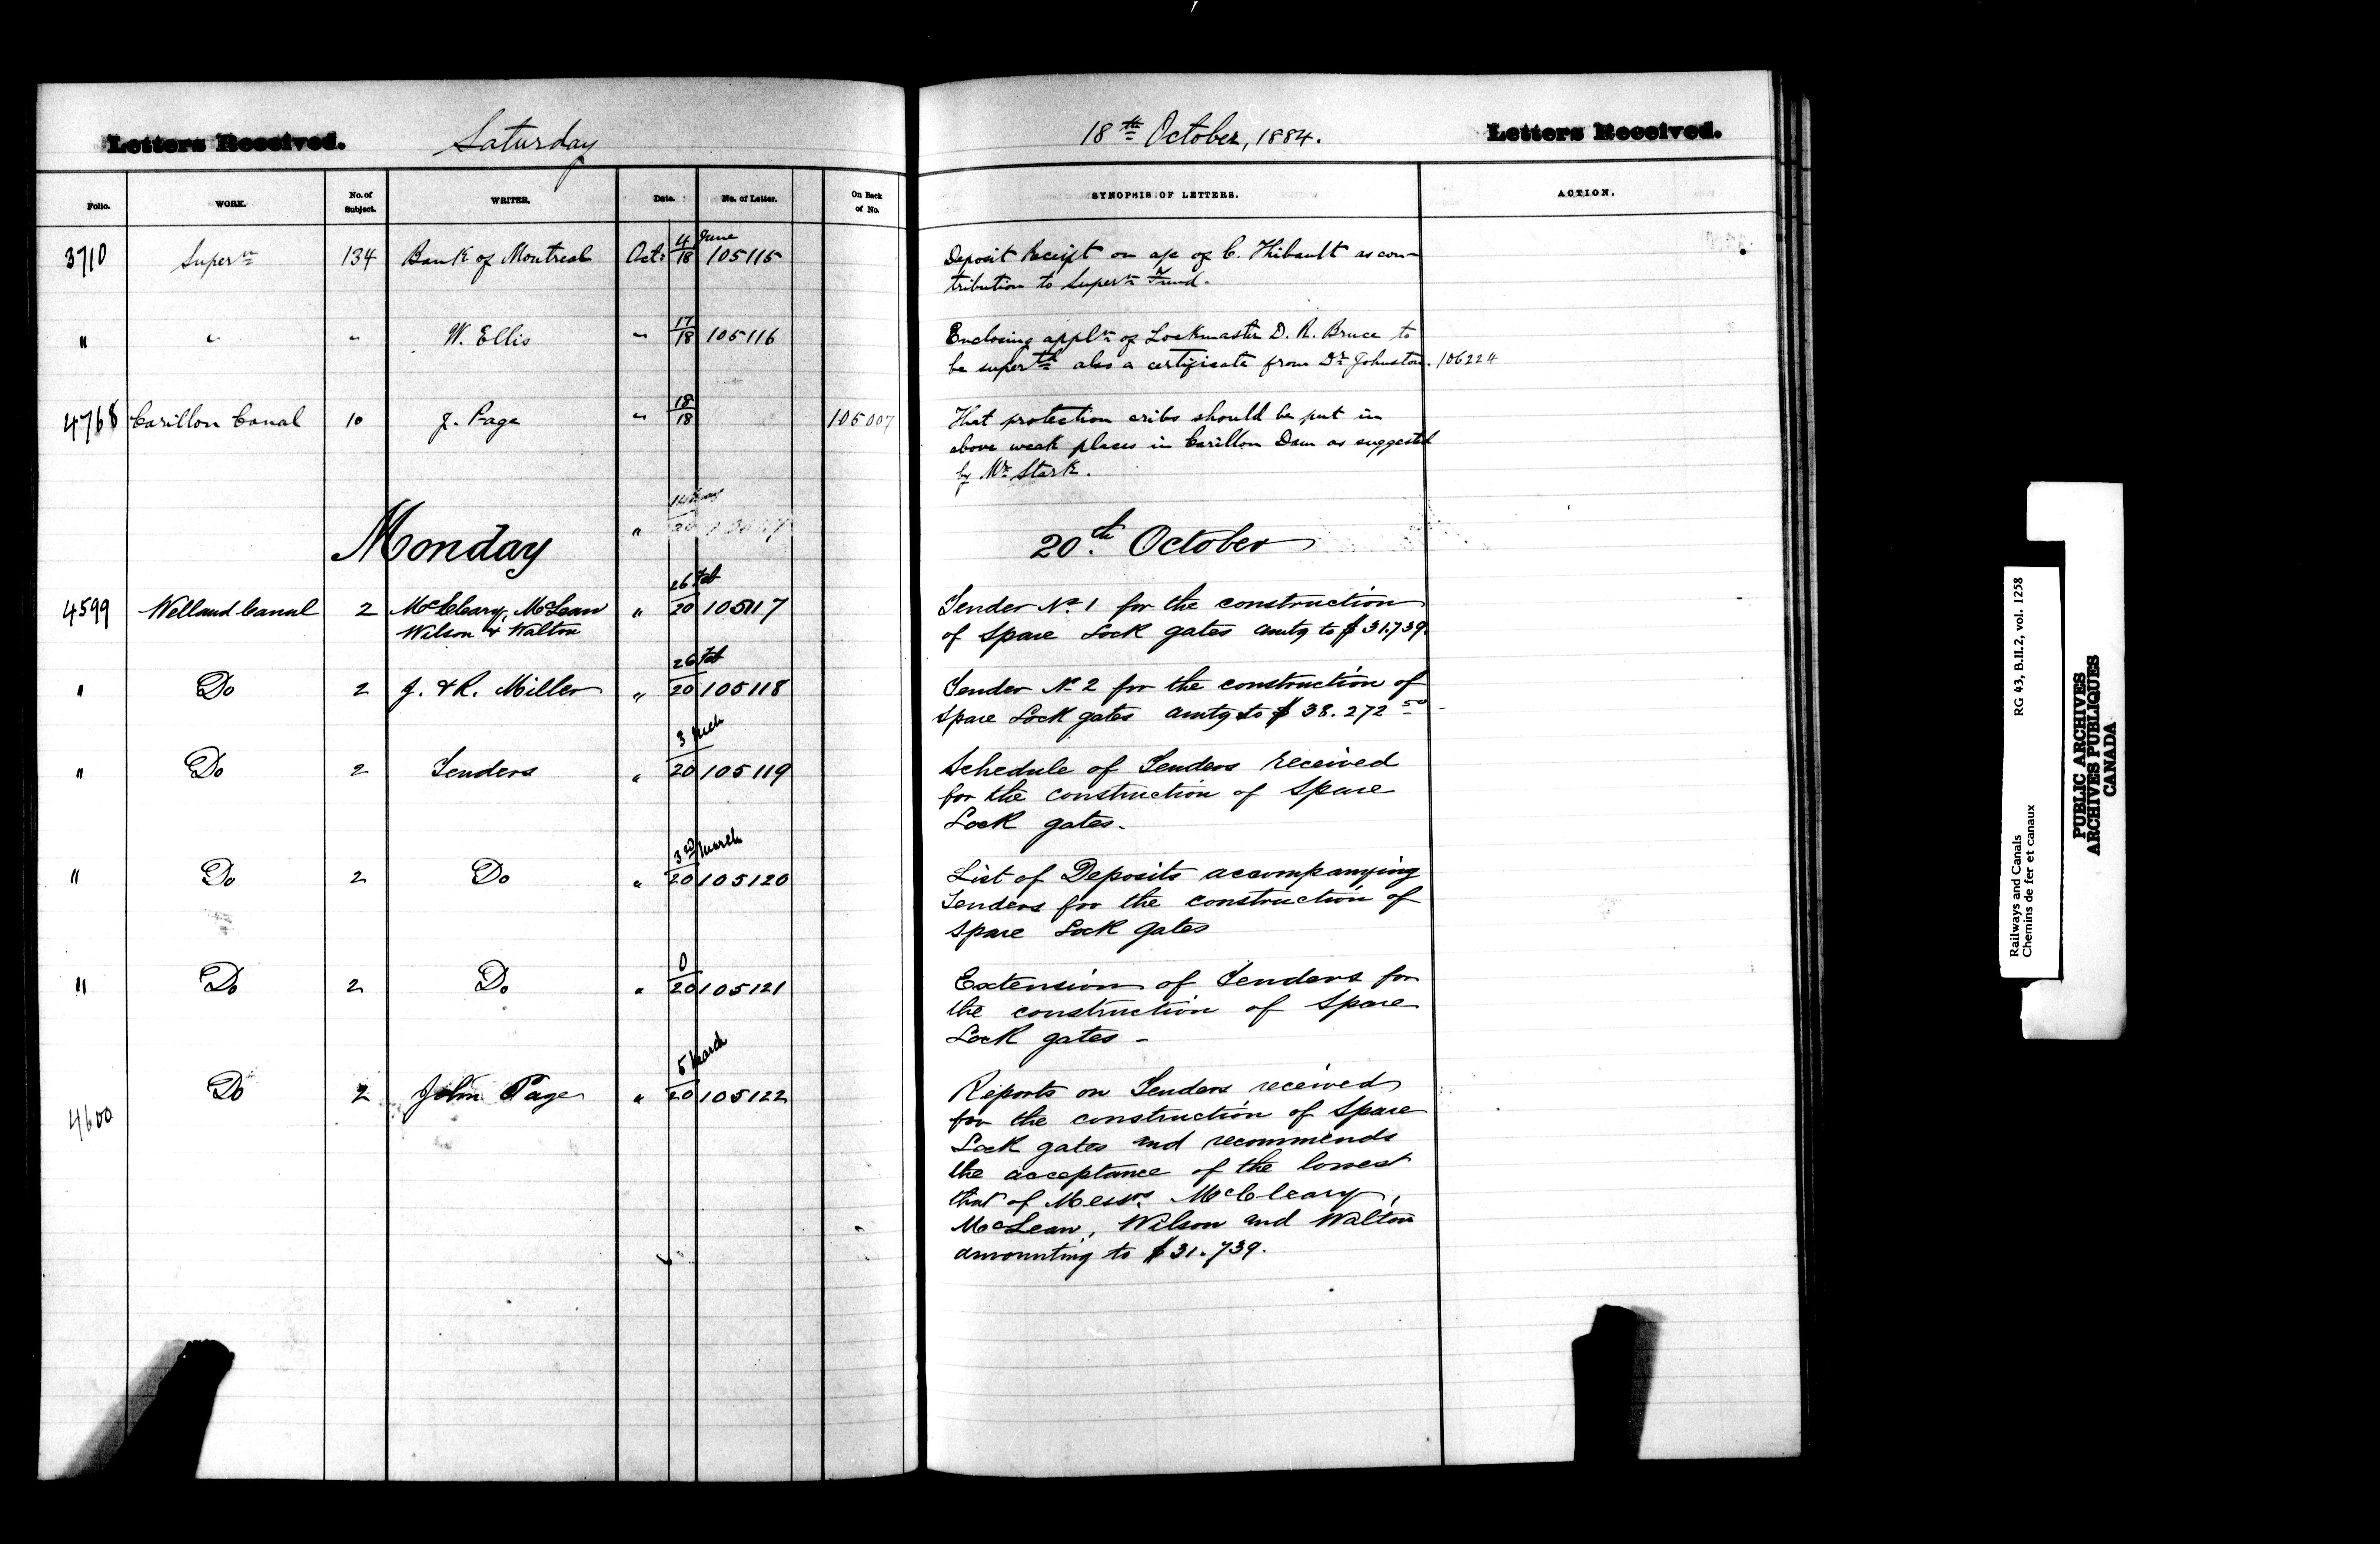 Letters Received. Saturday 18th October, 1884. Letters Received.
Folio. WORK. No. of Subject. WRITER. Date. No. of Letter. On Back of No. SYNOPSIS OF LETTERS. ACTION.
3710 Supern 134 Bank of Montreal Oct. 4 June 18 105115 Deposit Receipt on a/c of C. Thibault as con-
tribution to Supern Fund.
" " " W. Ellis " 17 18 105116 Enclosing appln of Lockmaster D. R. Bruce to
be supertd also a certificate from Dr Johnston. 106224
4768 Carillon Canal 10 J. Page " 18 18 105007 That protection cribs should be put in
above weak places in Carillon Dam as suggested
by Mr Stark.
Monday " 20th October
4599 Welland Canal 2 McCleary, McLean " 26 Feb 20 105117 Tender No. 1 for the construction
Wilson & Walton of Spare Lock gates amtg to $31.739.
" Do 2 J. & R. Miller " 26 Feb 20 105118 Tender No 2 for the construction of
Spare Lock gates amtg to $38.272 50
" Do 2 Tenders " 3 Mch 20 105119 Schedule of Tenders received
for the construction of Spare
Lock gates.
" Do 2 Do " 3rd March 20 105120 List of Deposits accompanying
Tenders for the construction of
Spare Lock gates
" Do 2 Do " 0 20 105121 Extension of Tenders for
the construction of Spare
Lock gates -
4600 Do 2 John Page " 5 March 20 105122 Reports on Tenders received
for the construction of Spare
Lock gates and recommends
the acceptance of the lowest
that of Messrs. McCleary,
McLean, Wilson and Walton
amounting to $31.739.
Railways and Canals RG 43, B.II.2, vol. 1258
Chemins de fer et canaux
PUBLIC ARCHIVES
ARCHIVES PUBLIQUES
CANADA